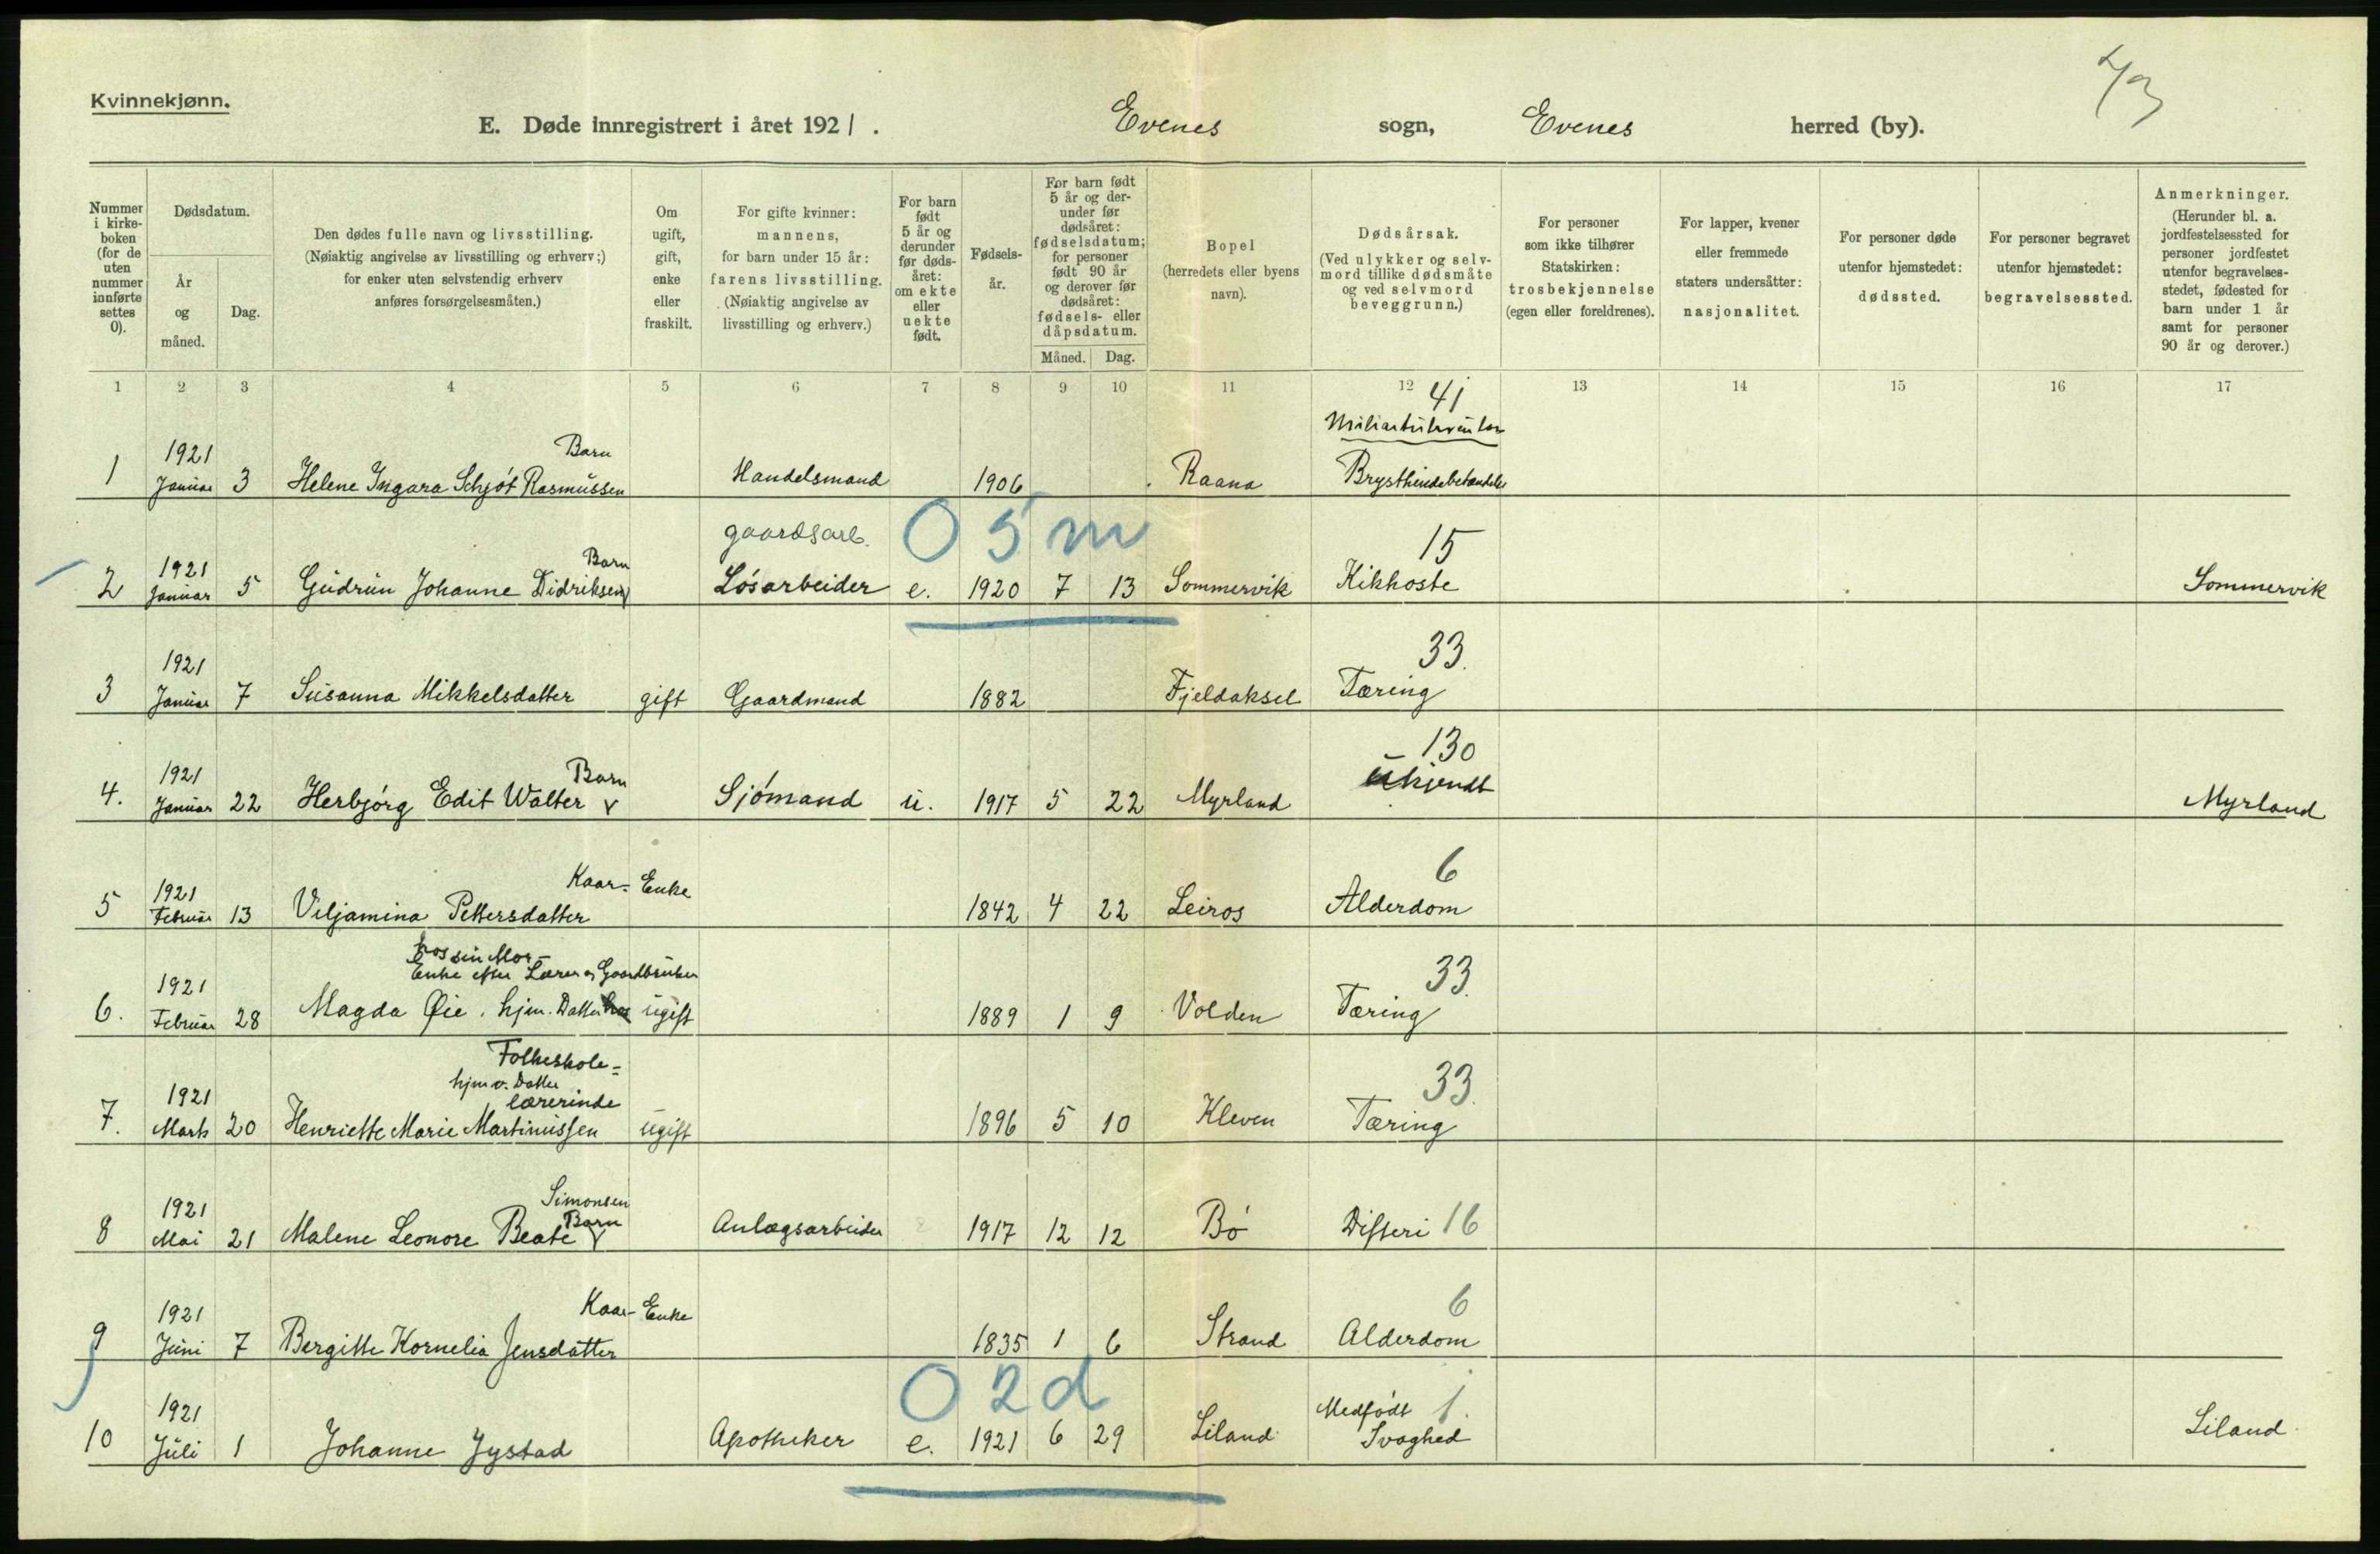 Kvinnekjønn.
73
E. Døde innregistrert i året 1921. Evenes sogn, Evenes herred (by).
Nummer i kirkeboken (for de uten nummer innførte settes 0).
Dødsdatum.
År og måned.
Dag.
Den dødes fulle navn og livsstilling. (Nøiaktig angivelse av livsstilling og erhverv;) for enker uten selvstendig erhverv anføres forsørgelsesmåten.)
Om ugift, gift, enke eller fraskilt.
For gifte kvinner: mannens, for barn under 15 år: farens livsstilling. (Nøiaktig angivelse av livsstilling og erhverv.)
For barn født 5 år og derunder før dødsåret: om ekte eller uekte født.
Fødselsår.
For barn født 5 år og derunder før dødsåret: fødselsdatum; for personer født 90 år og derover før dødsåret: fødsels- eller dåpsdatum.
Måned. Dag.
Bopel (herredets eller byens navn).
Dødsårsak. (Ved ulykker og selvmord tillike dødsmåte og ved selvmord beveggrunn.)
For personer som ikke tilhører Statskirken: trosbekjennelse (egen eller foreldrenes).
For lapper, kvener eller fremmede staters undersåtter: nasjonalitet.
For personer døde utenfor hjemstedet: dødssted.
For personer begravet utenfor hjemstedet: begravelsessted.
Anmerkninger. (Herunder bl. a. jordfestelsessted for personer jordfestet utenfor begravelsesstedet, fødested for barn under 1 år samt for personer 90 år og derover.)
1 2 3 4 5 6 7 8 9 10 11 12 13 14 15 16 17
41
1 1921 Januar 3 Helene Ingara Schjøt Rasmussen Barn Handelsmand 1906 Raana Brysthindebetændelse
gaardsarb. 0 5 m 15
2 1921 Januar 5 Gudrun Johanne Didriksen Barn Løsarbeider e. 1920 7 13 Sommervik Kikhoste Sommervik
33.
3 1921 Januar 7 Susanna Mikkelsdatter gift Gaardmand 1882 Fjeldaksel Tæring
130
4. 1921 Januar 22 Herbjørg Edit Walter Barn Sjømand u. 1917 5 22 Myrland Ukjendt Myrland
6
5 1921 Februar 13 Viljamina Pettersdatter Kaar- Enke 1842 4 22 Leiros Alderdom
hos sin Mor-
Enke efter Lærer og Gaardbruker
33.
6. 1921 Februar 28 Magda Øie. hjm. Datter hos ugift 1889 1 9 Volden Tæring
Folkeskole-
hjm v. Datter
lærerinde
33.
7. 1921 Marts 20 Henriette Marie Martinussen ugift 1896 5 10 Kleven Tæring
Simonsen
8 1921 Mai 21 Malene Leonore Beate Barn Anlægsarbeider 1917 12 12 Bø Difteri 16
6
9 1921 Juni 7 Bergitte Kornelia Jensdatter Kaar- Enke 1835 1 6 Strand Alderdom
0 2 d
10 1921 Juli 1 Johanne Jystad Apotheker e. 1921 6 29 Liland Medfødt Svaghed 1. Liland